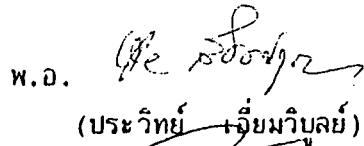 พ.อ.
(ประวิทย์ เอี่ยมวิบูลย์)